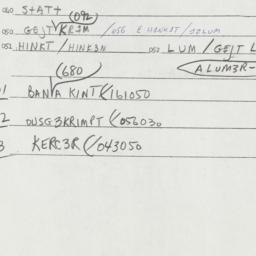 060 S+AT+
(092)
050 GEJT KRSM /056 E HONKOT/SOLUM
052 HINKT/HINK3N 052 LUM/GEJT L
(680) ALUM3R-
1 BANVA KINT(/161050
2 OUSG3KRIMPT(/056030
3 KERC3R(/043050